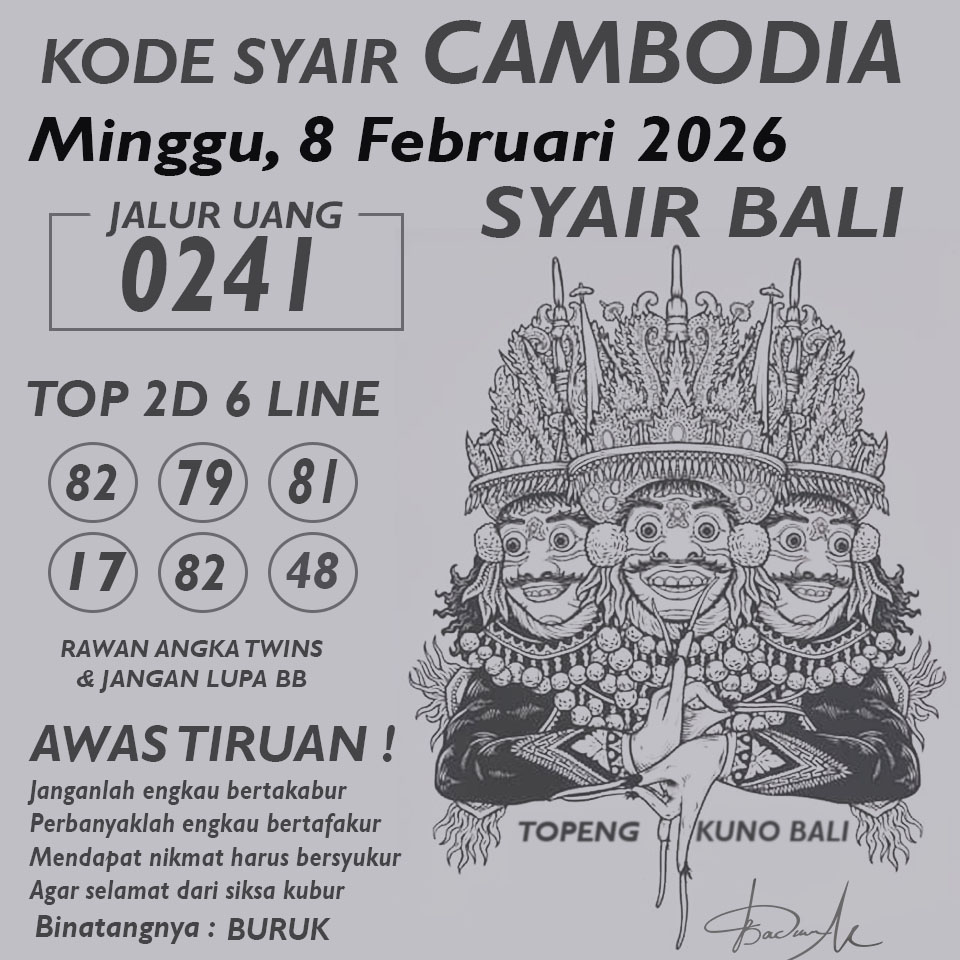 KODE SYAIR CAMBODIA
Minggu, 8 Februari 2026
SYAIR BALI
JALUR UANG
0241
TOP 2D 6 LINE
82 79 81
17 82 48
RAWAN ANGKA TWINS
& JANGAN LUPA BB
AWAS TIRUAN !
Janganlah engkau bertakabur
Perbanyaklah engkau bertafakur
Mendapat nikmat harus bersyukur
Agar selamat dari siksa kubur
Binatangnya : BURUK
TOPENG KUNO BALI